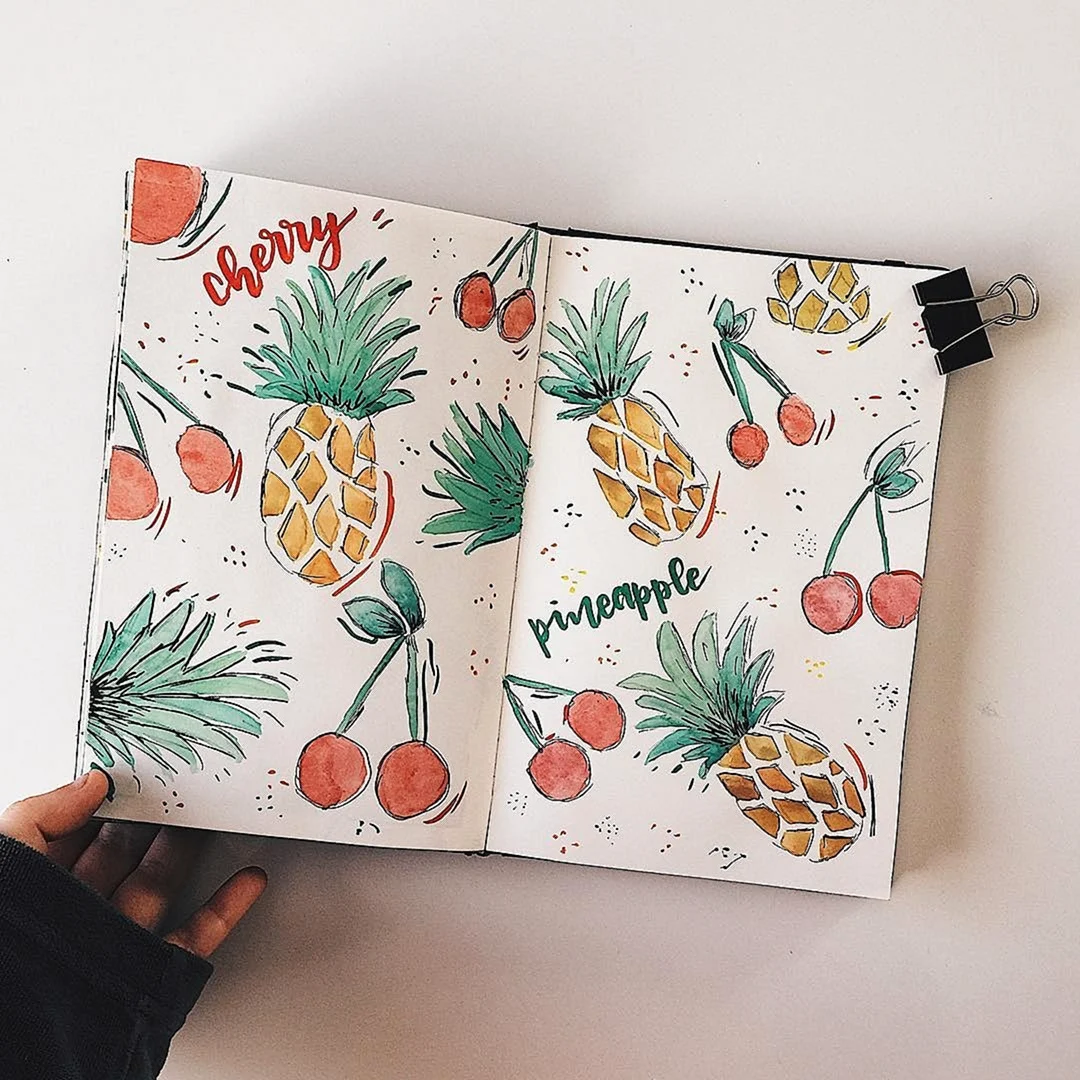 cherry
pineapple